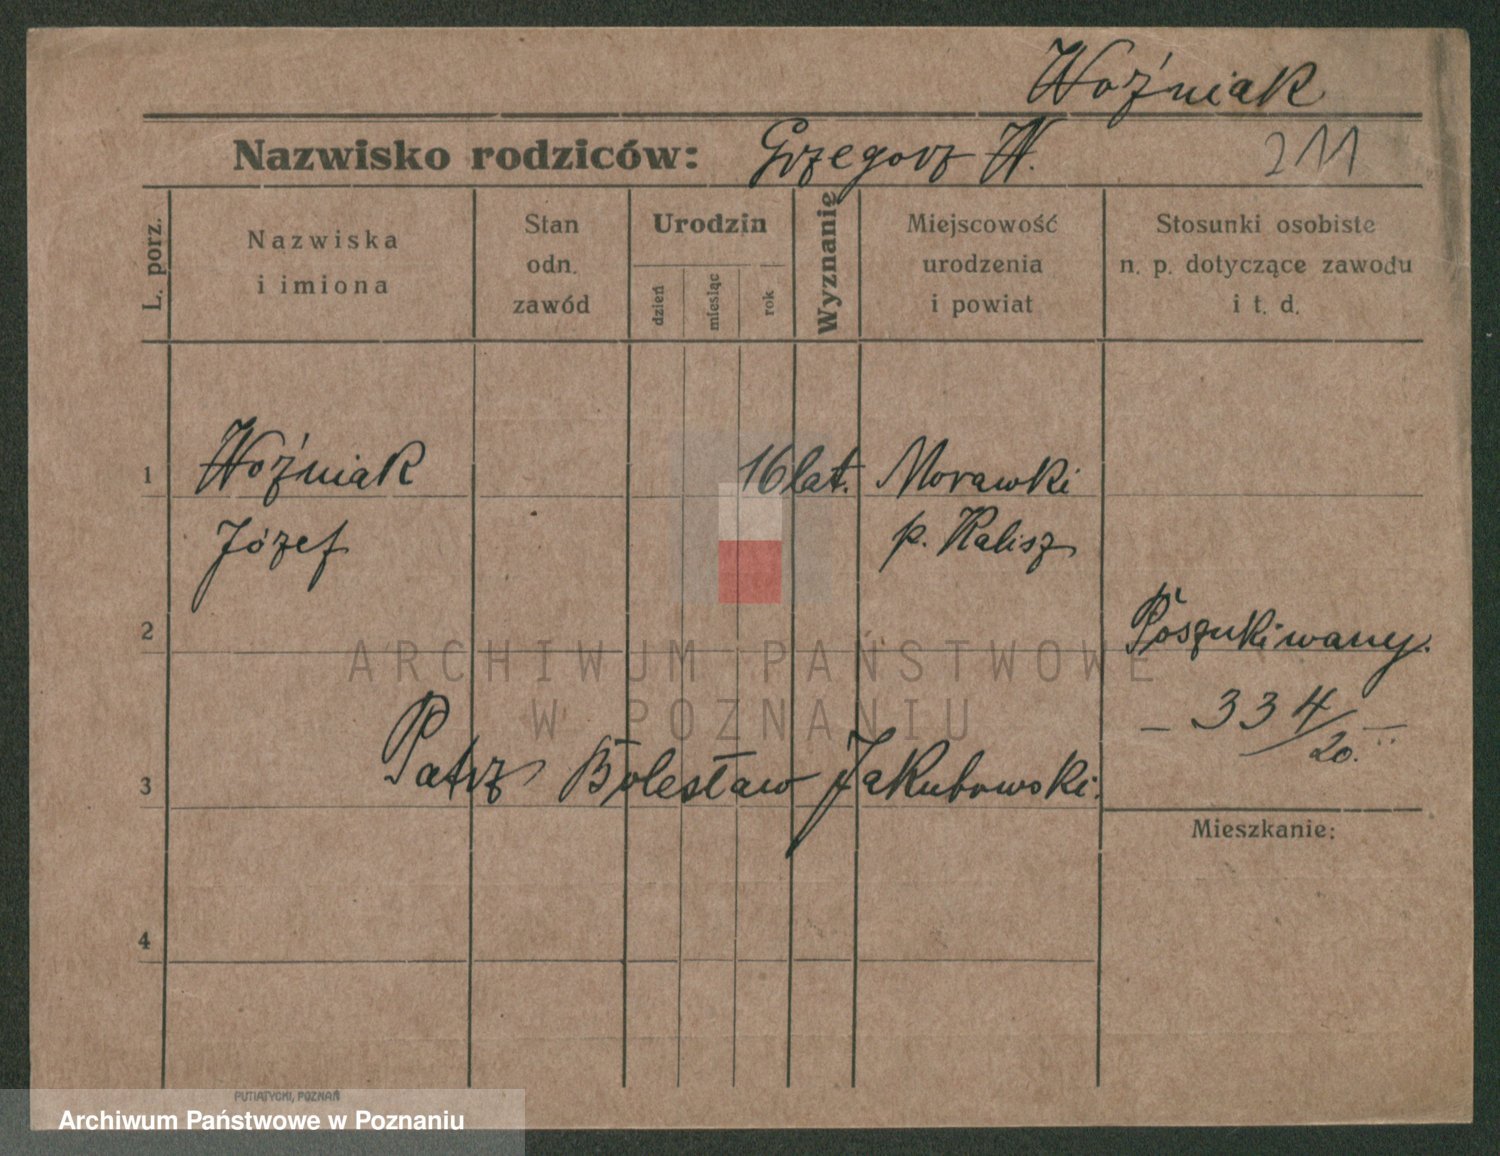 Woźniak
Nazwisko rodziców: Grzegorz W. 211
L. porz.
Nazwiska
i imiona
Stan
odn.
zawód
Urodzin
dzień
miesiąc
rok
Wyznanie
Miejscowość
urodzenia
i powiat
Stosunki osobiste
n. p. dotyczące zawodu
i t. d.
1 Woźniak 16 lat. Morawki
Józef p. Kalisz
2 Poszukiwany.
ARCHIWUM PAŃSTWOWE
W POZNANIU
– 334/20. –
3 Patrz Bolesław Jakubowski.
Mieszkanie:
4
PUTIATYCKI, POZNAŃ
Archiwum Państwowe w Poznaniu